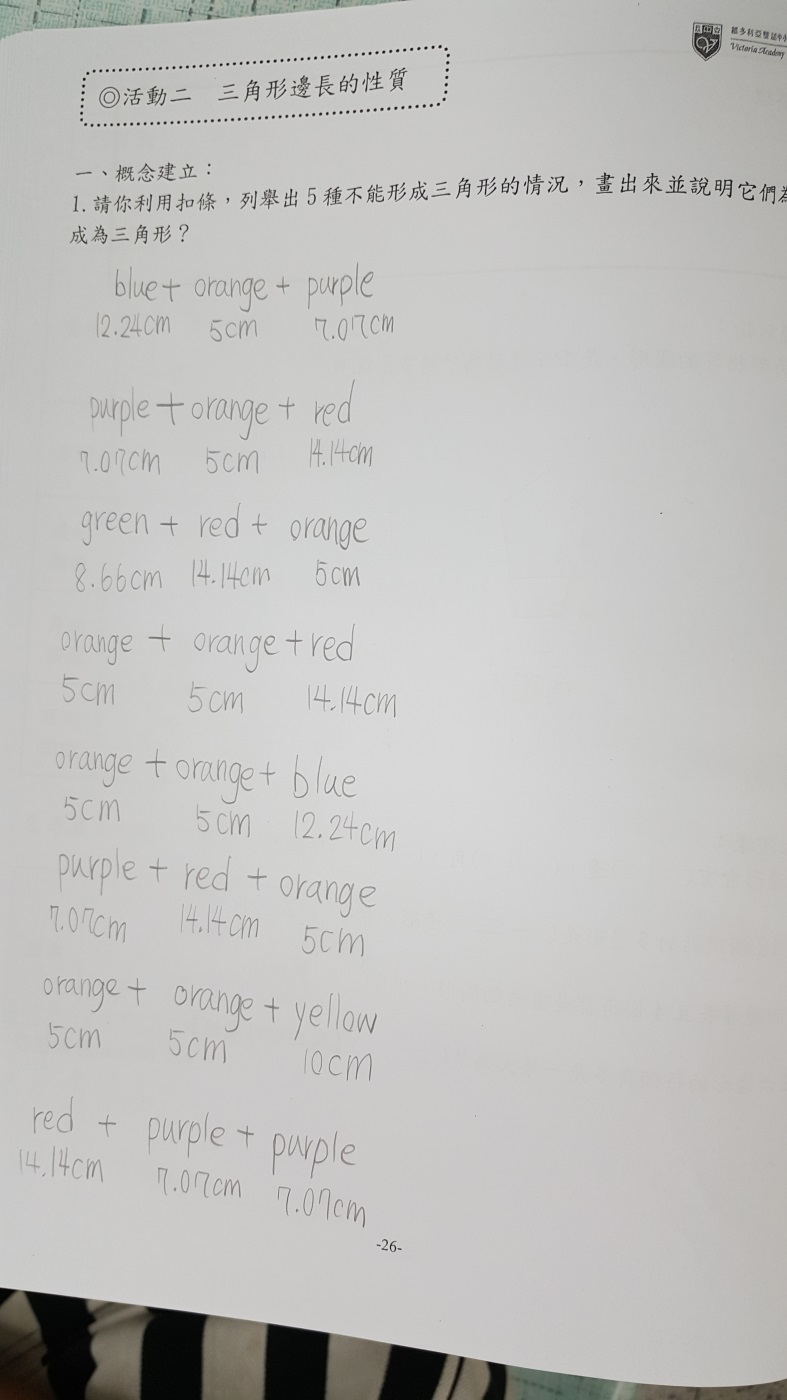 維多利亞雙語中小
Victoria Academy
◎活動二 三角形邊長的性質
一、概念建立：
1. 請你利用扣條，列舉出5種不能形成三角形的情況，畫出來並說明它們為
成為三角形？
blue + orange + purple
12.24cm 5cm 7.07cm
purple + orange + red
7.07cm 5cm 14.14cm
green + red + orange
8.66cm 14.14cm 5cm
orange + orange + red
5cm 5cm 14.14cm
orange + orange + blue
5cm 5cm 12.24cm
purple + red + orange
7.07cm 14.14cm 5cm
orange + orange + yellow
5cm 5cm 10cm
red + purple + purple
14.14cm 7.07cm 7.07cm
-26-